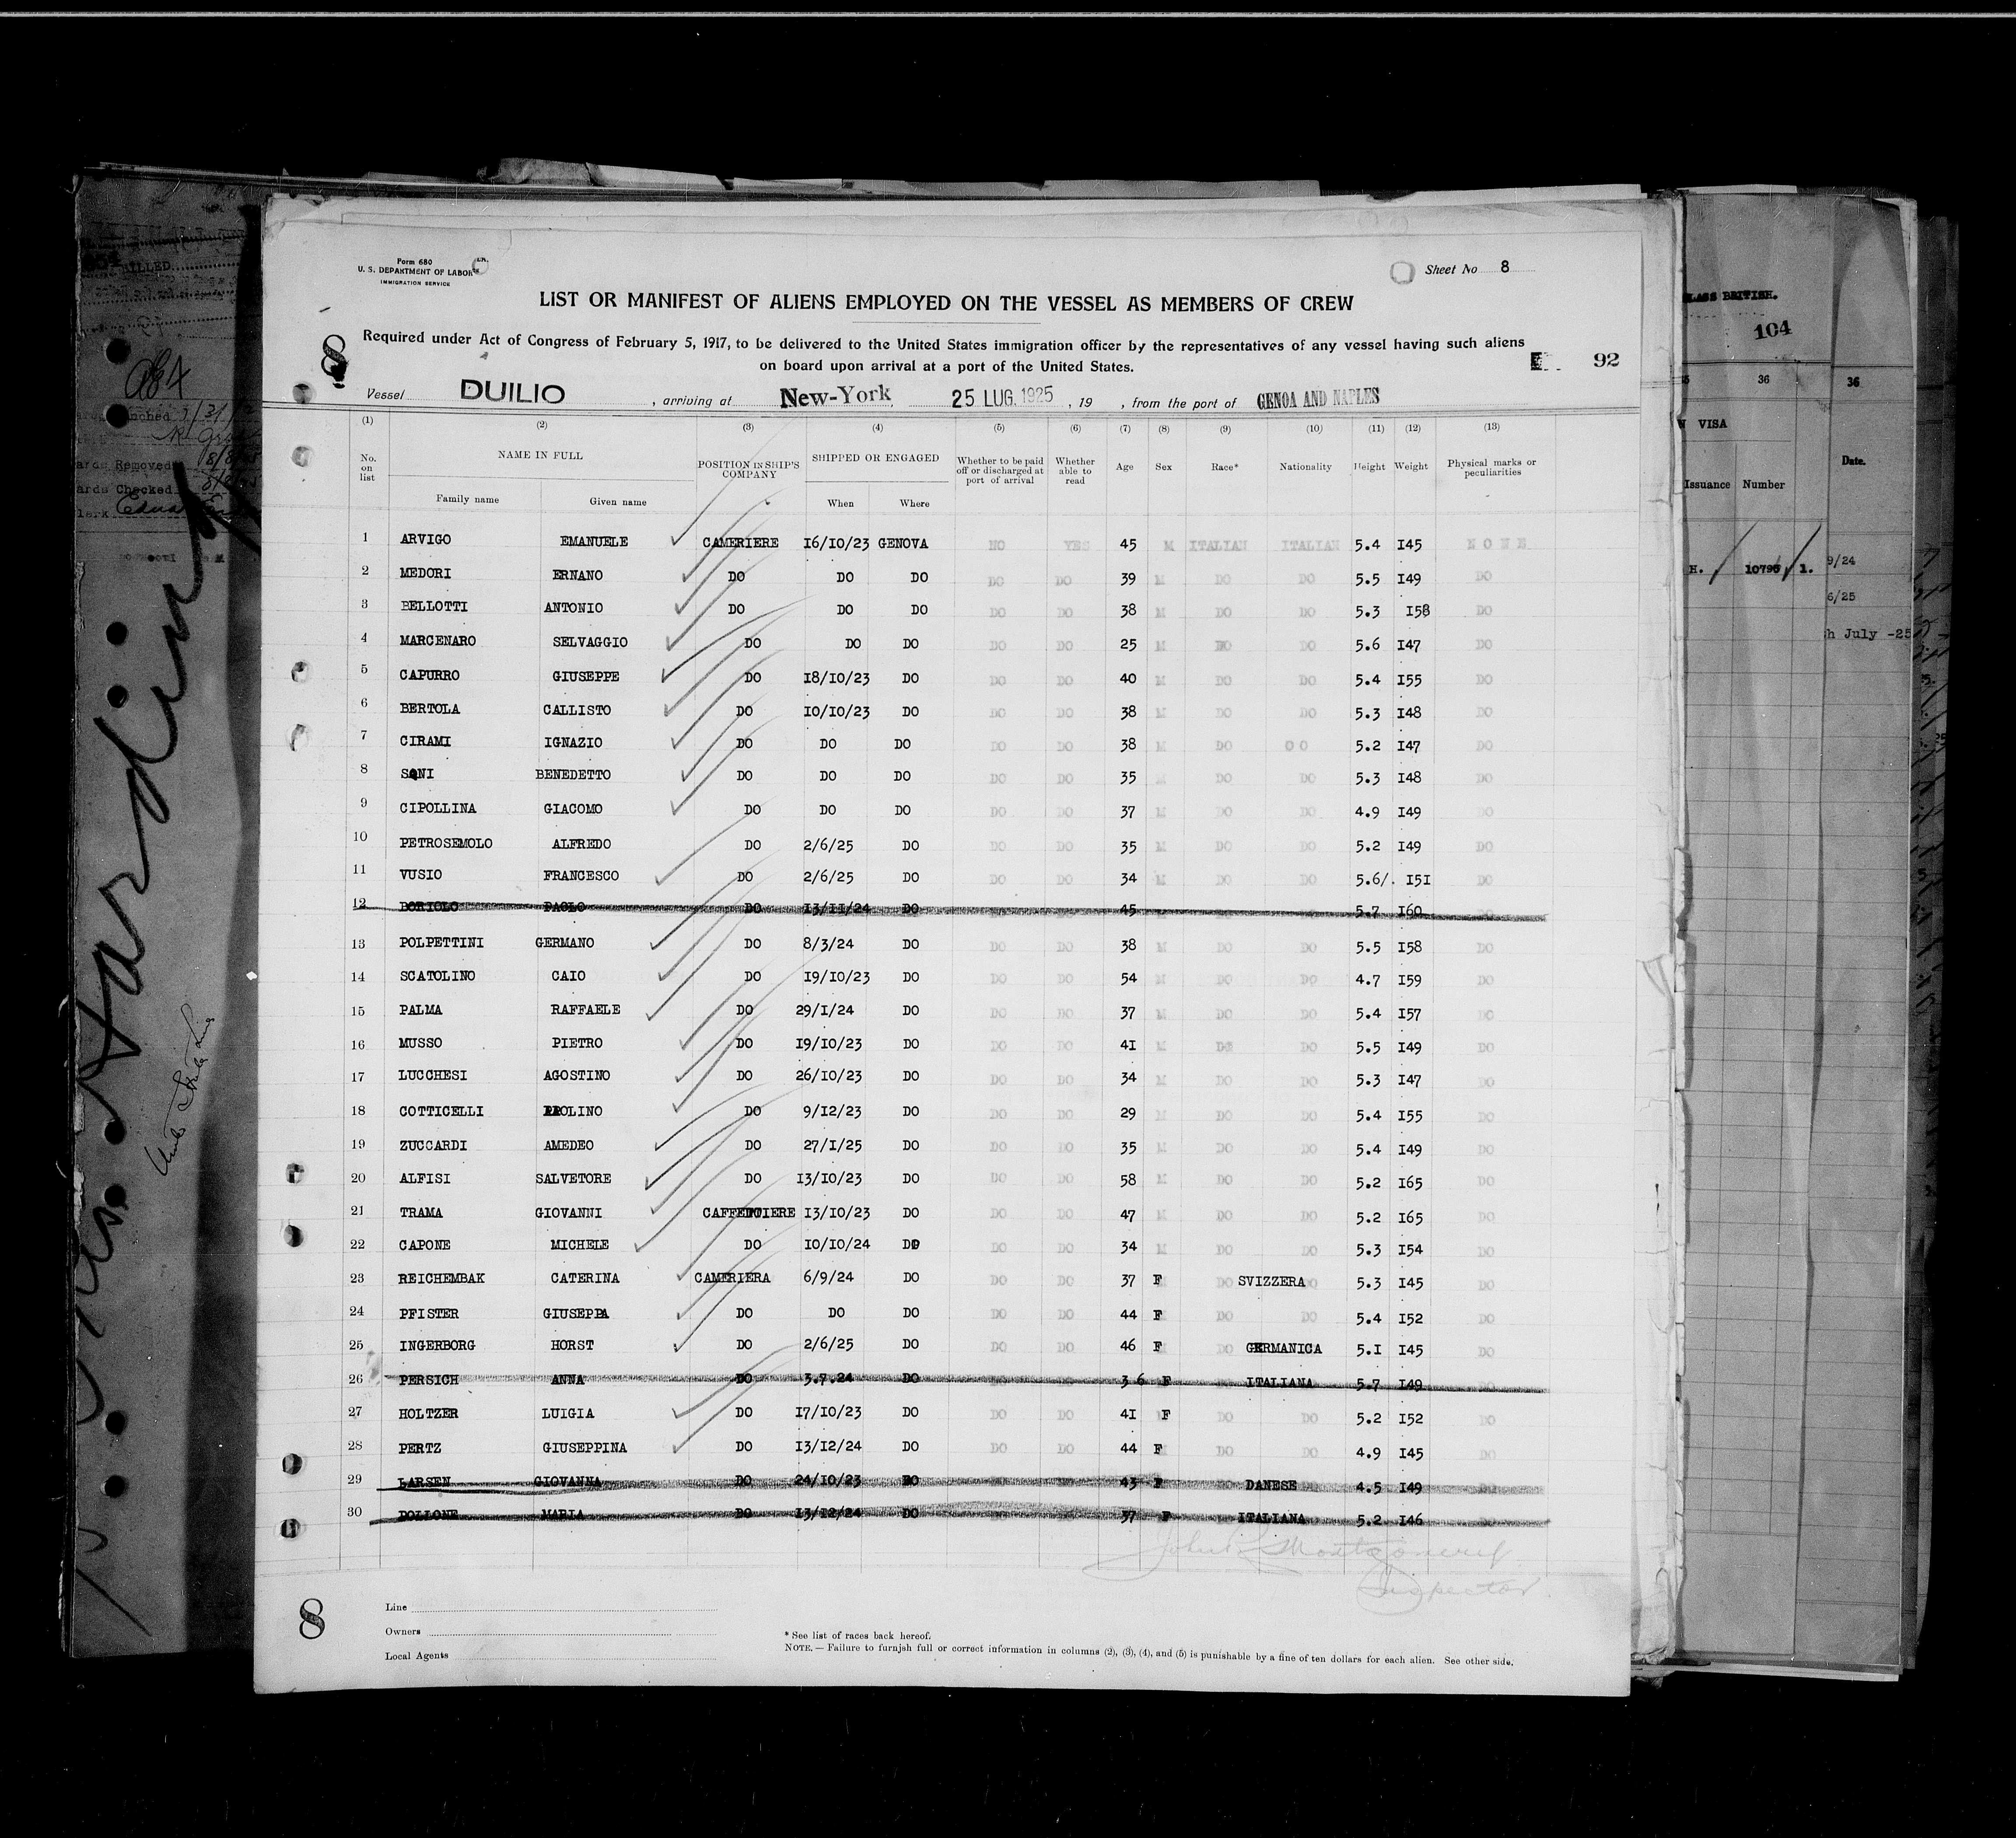 Form 680
U. S. DEPARTMENT OF LABOR
IMMIGRATION SERVICE
Sheet No 8
LIST OR MANIFEST OF ALIENS EMPLOYED ON THE VESSEL AS MEMBERS OF CREW
Required under Act of Congress of February 5, 1917, to be delivered to the United States immigration officer by the representatives of any vessel having such aliens
on board upon arrival at a port of the United States.
8
92
Vessel DUILIO , arriving at New-York 25 LUG. 1925 , 19 , from the port of GENOA AND NAPLES
(1) (2) (3) (4) (5) (6) (7) (8) (9) (10) (11) (12) (13)
No. on list NAME IN FULL Family name Given name POSITION IN SHIP'S COMPANY SHIPPED OR ENGAGED When Where Whether to be paid off or discharged at port of arrival Whether able to read Age Sex Race* Nationality Height Weight Physical marks or peculiarities
1 ARVIGO EMANUELE CAMERIERE I6/I0/23 GENOVA NO YES 45 M ITALIAN ITALIAN 5.4 I45 NONE
2 MEDORI ERNANO DO DO DO DO DO 39 M DO DO 5.5 I49 DO
3 BELLOTTI ANTONIO DO DO DO DO DO 38 M DO DO 5.3 I58 DO
4 MARCENARO SELVAGGIO DO DO DO DO DO 25 M DO DO 5.6 I47 DO
5 CAPURRO GIUSEPPE DO I8/I0/23 DO DO DO 40 M DO DO 5.4 I55 DO
6 BERTOLA CALLISTO DO I0/I0/23 DO DO DO 38 M DO DO 5.3 I48 DO
7 CIRAMI IGNAZIO DO DO DO DO DO 38 M DO OO 5.2 I47 DO
8 SANI BENEDETTO DO DO DO DO DO 35 M DO DO 5.3 I48 DO
9 CIPOLLINA GIACOMO DO DO DO DO DO 37 M DO DO 4.9 I49 DO
10 PETROSEMOLO ALFREDO DO 2/6/25 DO DO DO 35 M DO DO 5.2 I49 DO
11 VUSIO FRANCESCO DO 2/6/25 DO DO DO 34 M DO DO 5.6/. I5I DO
12 BORIOLO PAOLO DO I3/II/24 DO 45 5.7 I60
13 POLPETTINI GERMANO DO 8/3/24 DO DO DO 38 M DO DO 5.5 I58 DO
14 SCATOLINO CAIO DO I9/I0/23 DO DO DO 54 M DO DO 4.7 I59 DO
15 PALMA RAFFAELE DO 29/I/24 DO DO DO 37 M DO DO 5.4 I57 DO
16 MUSSO PIETRO DO I9/I0/23 DO DO DO 4I M DO DO 5.5 I49 DO
17 LUCCHESI AGOSTINO DO 26/I0/23 DO DO DO 34 M DO DO 5.3 I47 DO
18 COTTICELLI PAOLINO DO 9/I2/23 DO DO DO 29 M DO DO 5.4 I55 DO
19 ZUCCARDI AMEDEO DO 27/I/25 DO DO DO 35 M DO DO 5.4 I49 DO
20 ALFISI SALVETORE DO I3/I0/23 DO DO DO 58 M DO DO 5.2 I65 DO
21 TRAMA GIOVANNI CAFFETTIERE I3/I0/23 DO DO DO 47 M DO DO 5.2 I65 DO
22 CAPONE MICHELE DO I0/I0/24 DO DO DO 34 M DO DO 5.3 I54 DO
23 REICHEMBAK CATERINA CAMERIERA 6/9/24 DO DO DO 37 F DO SVIZZERA 5.3 I45 DO
24 PFISTER GIUSEPPA DO DO DO DO DO 44 F DO DO 5.4 I52 DO
25 INGERBORG HORST DO 2/6/25 DO DO DO 46 F DO GERMANICA 5.I I45 DO
26 PERSICH ANNA DO 3.7.24 DO 36 F ITALIANA 5.7 I49
27 HOLTZER LUIGIA DO I7/I0/23 DO DO DO 4I F DO DO 5.2 I52 DO
28 PERTZ GIUSEPPINA DO I3/I2/24 DO DO DO 44 F DO DO 4.9 I45 DO
29 LARSEN GIOVANNA DO 24/I0/23 DO 43 F DANESE 4.5 I49
30 DOLLONE MARIA DO I3/I2/24 DO 37 F ITALIANA 5.2 I46
John Montgomery
Inspector
8
Line
Owners
Local Agents
* See list of races back hereof.
NOTE. — Failure to furnjsh full or correct information in columns (2), (3), (4), and (5) is punishable by a fine of ten dollars for each alien. See other side.
BRITISH.
104
36 36
VISA
Issuance Number Date.
H. 10796 1. 9/24
6/25
July -25